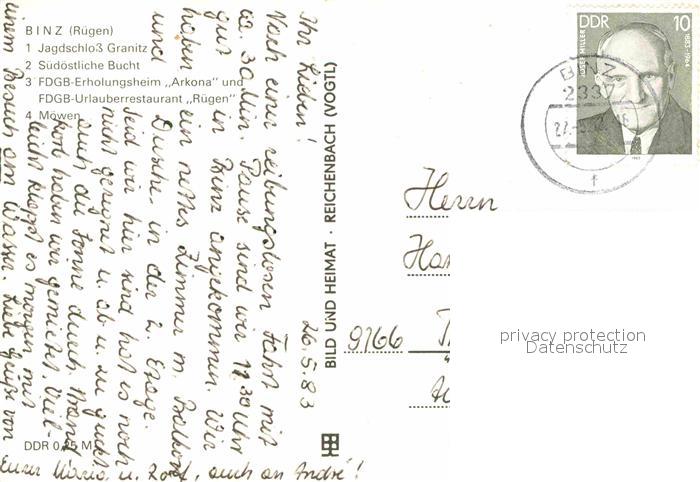 BINZ (Rügen)
1 Jagdschloß Granitz
2 Südöstliche Bucht
3 FDGB-Erholungsheim „Arkona" und
FDGB-Urlauberrestaurant „Rügen"
4 Möwen
DDR 0,25 M
BILD UND HEIMAT · REICHENBACH (VOGTL)
26.5.83
Ihr Lieben!
Nach einer reibungslosen Fahrt mit
ca. 30 Min. Pause sind wir 11.30 Uhr
gut in Binz angekommen. Wir
haben ein nettes Zimmer m. Balkon
und Dusche, in der 2. Etage.
Seid wir hier sind hat es noch
nicht geregnet u. ab u. zu guckt
auch die Sonne durch. Strand-
korb haben wir gemietet. Viel-
leicht klappt es morgen mit
einem Besuch am Wasser. Liebe Grüße von
Eurer Maria u. Rolf, auch an André!
DDR 10
JOSEF MILLER 1883-1964
BINZ
2337
f
Herrn
9166
privacy protection
Datenschutz